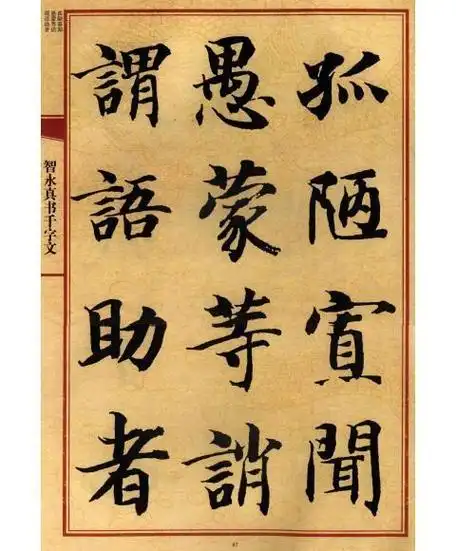 孤陋寡聞
愚蒙等誚
謂語助者
智永真书千字文